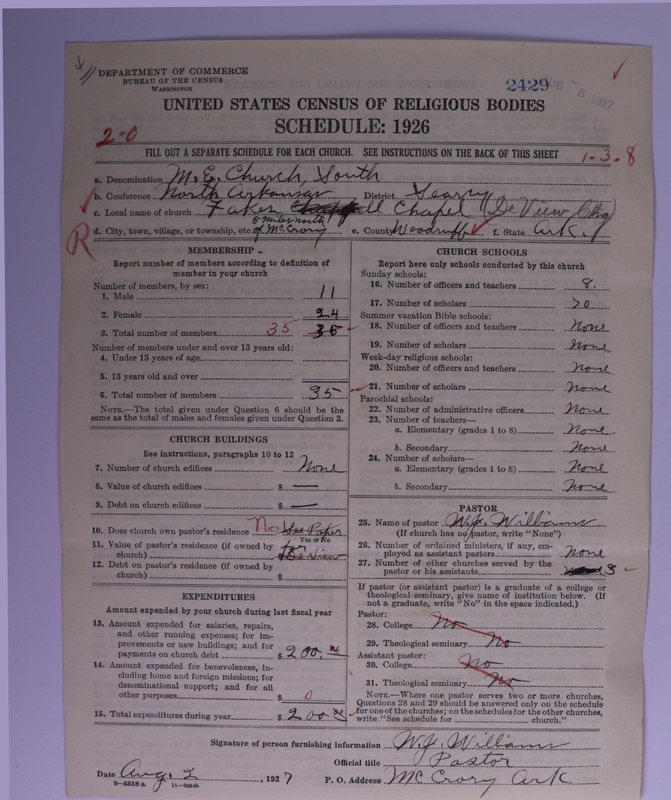 DEPARTMENT OF COMMERCE
BUREAU OF THE CENSUS
WASHINGTON
2429
AUG 5 1927
UNITED STATES CENSUS OF RELIGIOUS BODIES
SCHEDULE: 1926
2-0
FILL OUT A SEPARATE SCHEDULE FOR EACH CHURCH. SEE INSTRUCTIONS ON THE BACK OF THIS SHEET
1-3-8
a. Denomination M.E. Church, South
b. Conference North Arkansas District Searcy
c. Local name of church Fakes Chapel (De View Chg)
d. City, town, village, or township, etc. 5 miles north of McCrory e. County Woodruff f. State Ark.
R
MEMBERSHIP
Report number of members according to definition of
member in your church
Number of members, by sex:
1. Male 11
2. Female 24
3. Total number of members 35 35
Number of members under and over 13 years old:
4. Under 13 years of age
5. 13 years old and over
6. Total number of members 35
NOTE.—The total given under Question 6 should be the
same as the total of males and females given under Question 3.
CHURCH BUILDINGS
See instructions, paragraphs 10 to 12
7. Number of church edifices None
8. Value of church edifices $ —
9. Debt on church edifices $ —
10. Does church own pastor's residence No See Paper
Yes or No
11. Value of pastor's residence (if owned by
church) $ for De View
12. Debt on pastor's residence (if owned by
church) $
EXPENDITURES
Amount expended by your church during last fiscal year
13. Amount expended for salaries, repairs,
and other running expenses; for im-
provements or new buildings; and for
payments on church debt $ 200.
14. Amount expended for benevolences, in-
cluding home and foreign missions; for
denominational support; and for all
other purposes $ 0
15. Total expenditures during year $ 200
CHURCH SCHOOLS
Report here only schools conducted by this church
Sunday schools:
16. Number of officers and teachers 8.
17. Number of scholars 70
Summer vacation Bible schools:
18. Number of officers and teachers None
19. Number of scholars None
Week-day religious schools:
20. Number of officers and teachers None
21. Number of scholars None
Parochial schools:
22. Number of administrative officers None
23. Number of teachers—
a. Elementary (grades 1 to 8) None
b. Secondary None
24. Number of scholars—
a. Elementary (grades 1 to 8) None
b. Secondary None
PASTOR
25. Name of pastor W.J. Williams
(If church has no pastor, write "None")
26. Number of ordained ministers, if any, em-
ployed as assistant pastors None
27. Number of other churches served by the
pastor or his assistants 3
If pastor (or assistant pastor) is a graduate of a college or
theological seminary, give name of institution below. (If
not a graduate, write "No" in the space indicated.)
Pastor:
28. College No
29. Theological seminary No
Assistant pastor:
30. College No
31. Theological seminary No
NOTE.—Where one pastor serves two or more churches,
Questions 28 and 29 should be answered only on the schedule
for one of the churches; on the schedules for the other churches,
write "See schedule for church."
Signature of person furnishing information W.J. Williams
Official title Pastor
Date Aug. 2, 1927 P. O. Address McCrory Ark
8—5518a 11—9264b